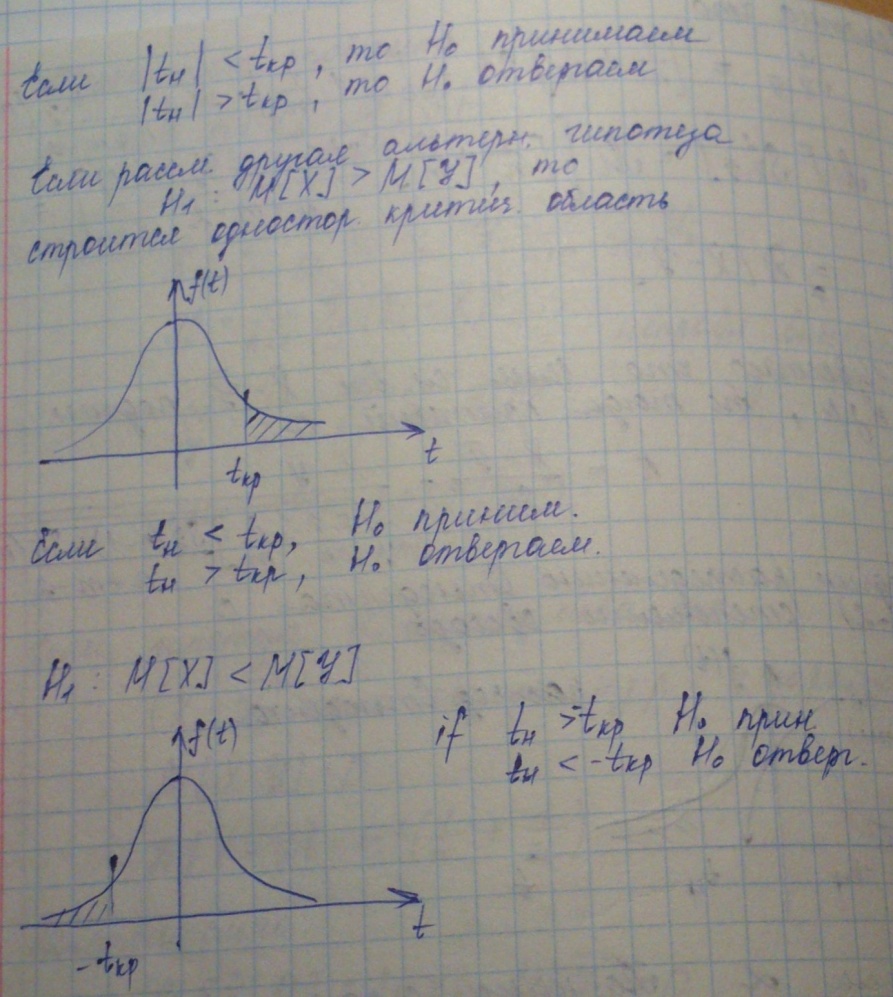 Если |tн| < tкр, то H₀ принимаем
|tн| > tкр, то H₀ отвергаем
Если рассм. другая альтерн. гипотеза
H₁: M[X] > M[Y], то
строится одностор. критич. область
f(t)
t
tкр
Если tн < tкр, H₀ приним.
tн > tкр, H₀ отвергаем.
H₁: M[X] < M[Y]
f(t)
if tн > -tкр H₀ прин.
tн < -tкр H₀ отверг.
t
-tкр